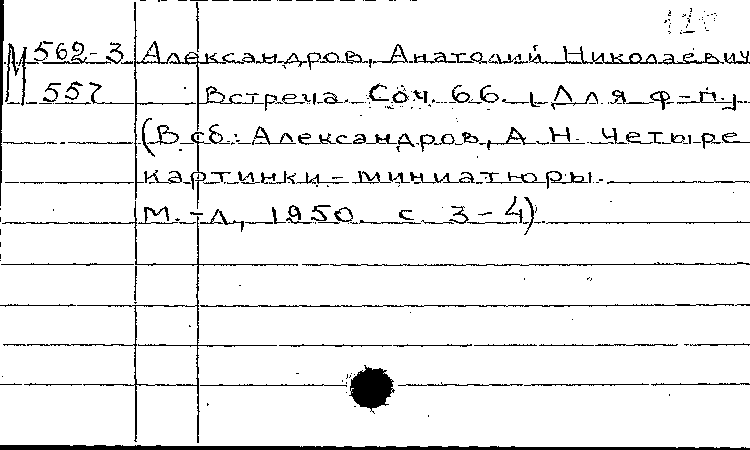 М 562-3 Александров, Анатолий Николаевич
557 Встреча. Соч. 66. [Для ф-п.]
(В сб.: Александров, А. Н. Четыре
картинки-миниатюры.
М.-Л., 1950. с. 3-4)